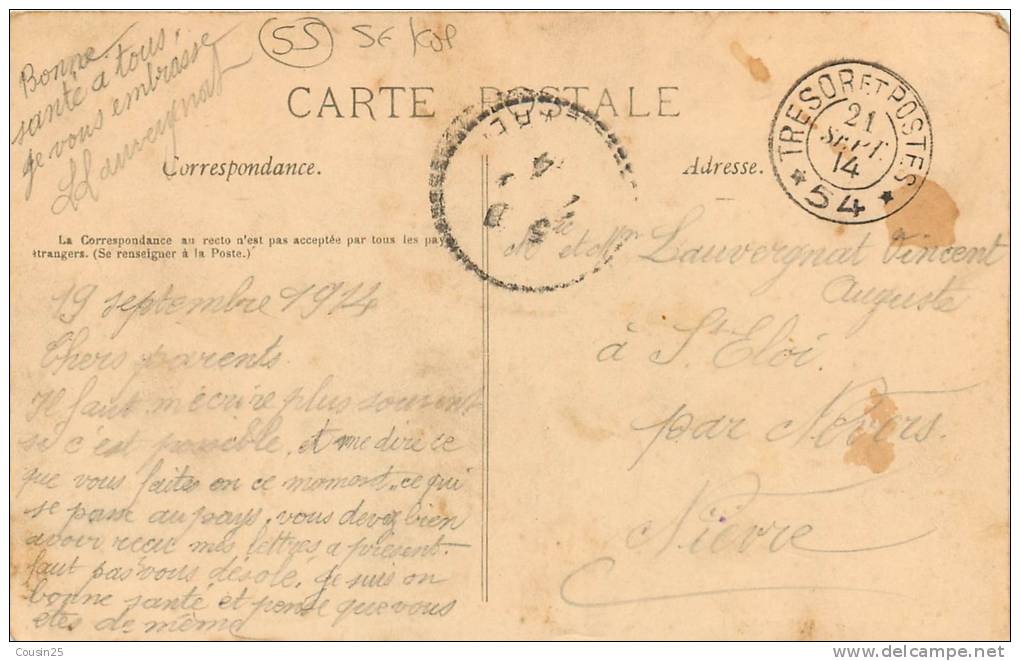 Bonne
santé à tous,
je vous embrasse
Lauvergnat
55
CARTE POSTALE
Correspondance.
Adresse.
TRESOR ET POSTES
21
SEPT.
14
* 54 *
La Correspondance au recto n'est pas acceptée par tous les pays
étrangers. (Se renseigner à la Poste.)
19 septembre 1914
Chers parents.
Il faut m'écrire plus souvent
si c'est possible, et me dire ce
que vous faites en ce moment, ce qui
se passe au pays, vous devez bien
avoir reçu mes lettres a présent.
faut pas vous désolé, je suis en
bonne santé et pense que vous
etes de même
Mr et Mme Lauvergnat Vincent
Auguste
à St Eloi.
par Nevers.
Nièvre
Cousin25